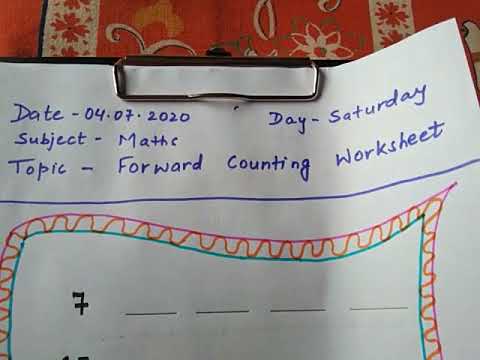 Date - 04.07.2020 Day - Saturday
Subject - Maths
Topic - Forward Counting Worksheet
7 ___ ___ ___ ___